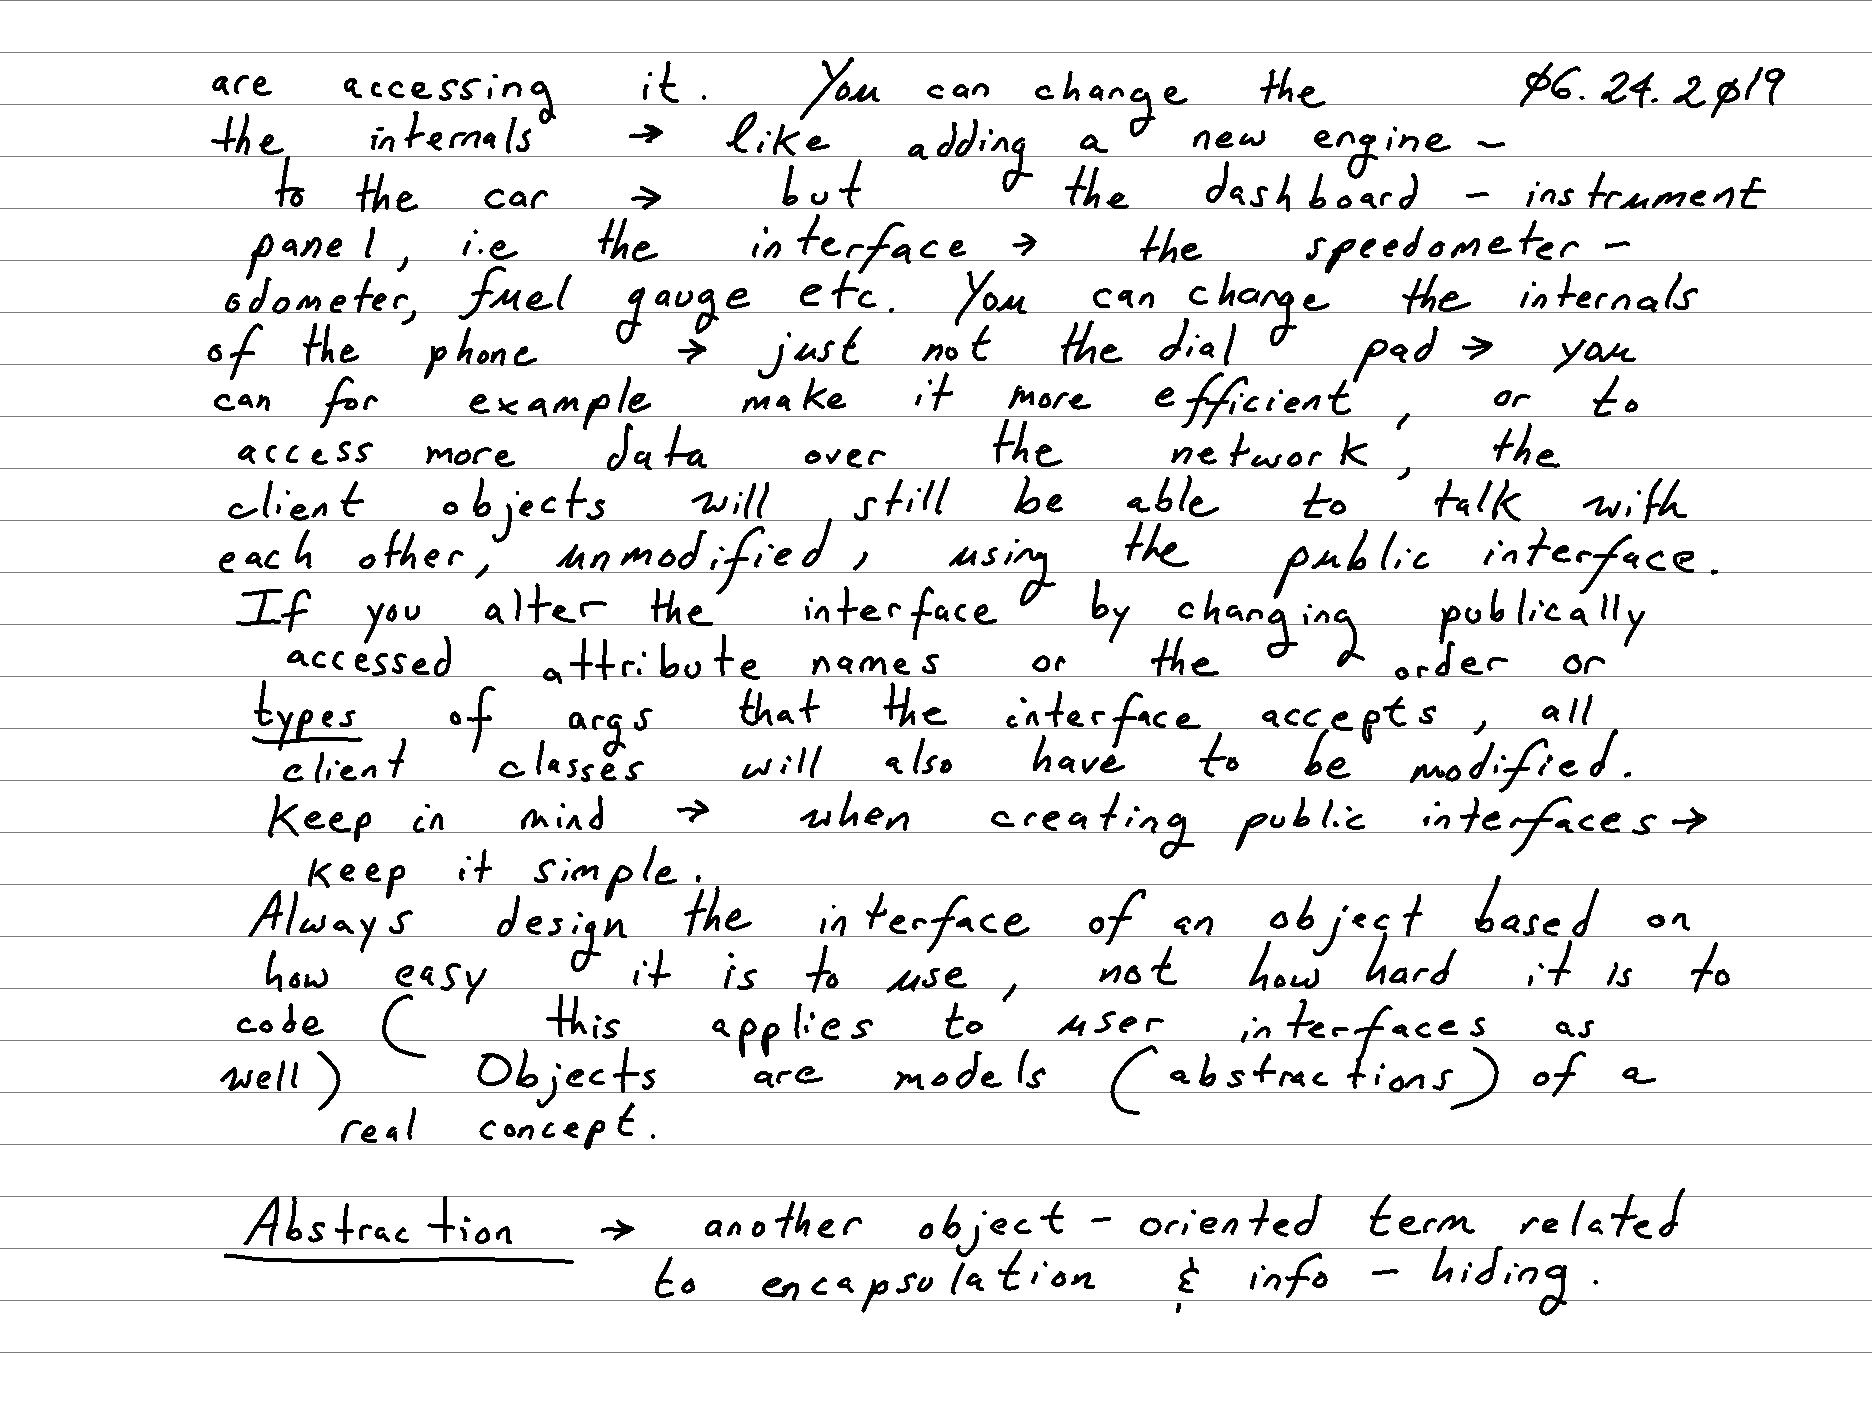 are accessing it. You can change the 06.24.2019
the internals → like adding a new engine -
to the car → but the dashboard - instrument
panel, i.e the interface → the speedometer -
odometer, fuel gauge etc. You can change the internals
of the phone → just not the dial pad → you
can for example make it more efficient, or to
access more data over the network, the
client objects will still be able to talk with
each other, unmodified, using the public interface.
If you alter the interface by changing publically
accessed attribute names or the order or
types of args that the interface accepts, all
client classes will also have to be modified.
Keep in mind → when creating public interfaces →
keep it simple.
Always design the interface of an object based on
how easy it is to use, not how hard it is to
code ( this applies to user interfaces as
well) Objects are models (abstractions) of a
real concept.
Abstraction → another object - oriented term related
to encapsulation & info - hiding.